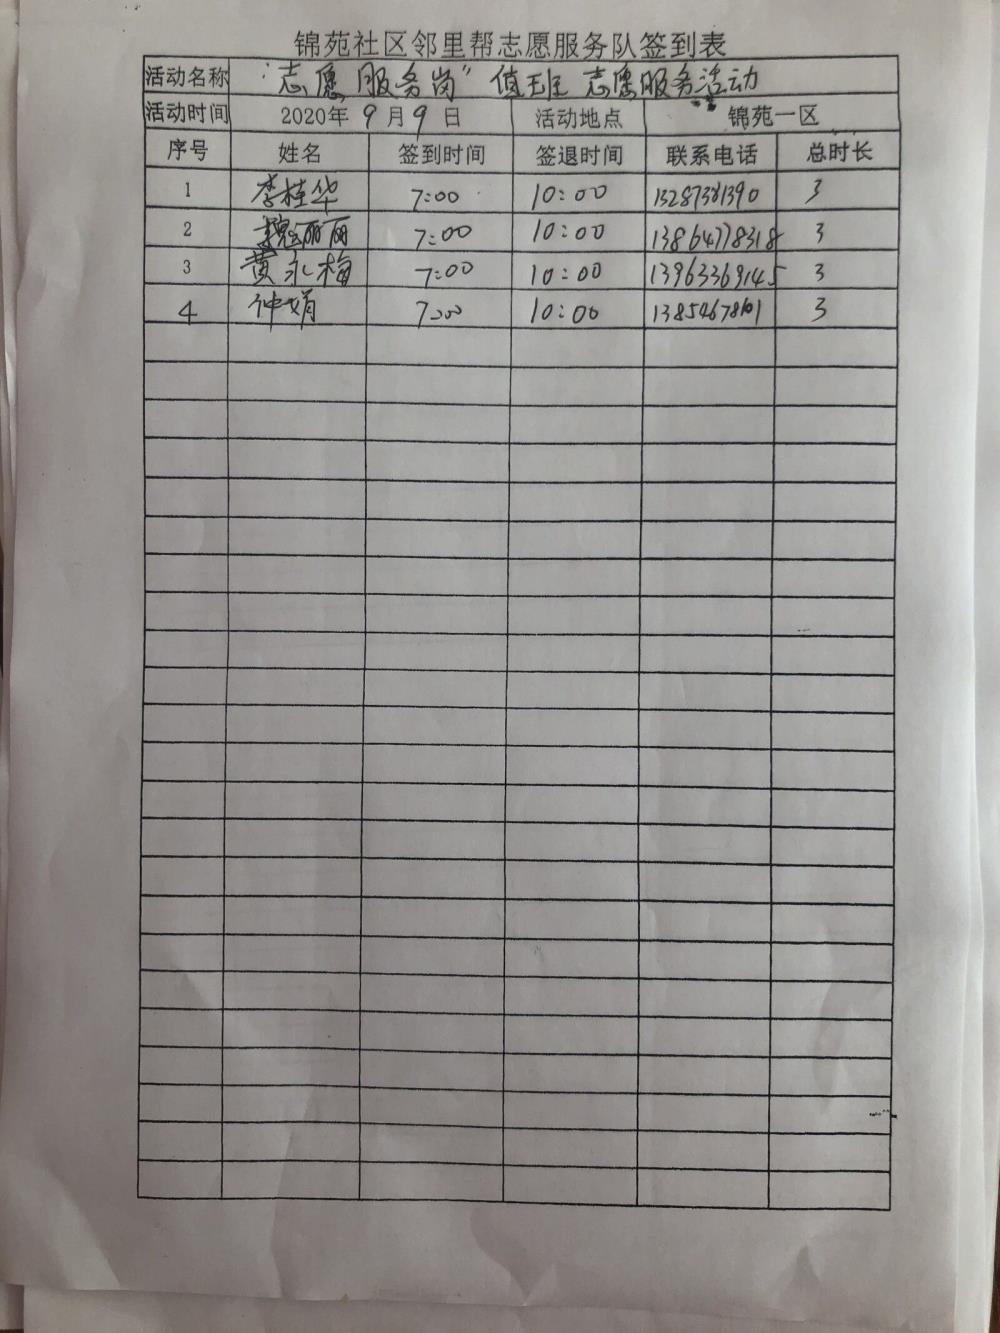 锦苑社区邻里帮志愿服务队签到表
活动名称 “志愿服务岗”值班 志愿服务活动
活动时间 2020年 9 月 9 日 活动地点 锦苑一区
序号 姓名 签到时间 签退时间 联系电话 总时长
1 李桂华 7:00 10:00 13287381390 3
2 魏丽丽 7:00 10:00 13864778318 3
3 黄永梅 7:00 10:00 13963369145 3
4 仲娟 7:00 10:00 3